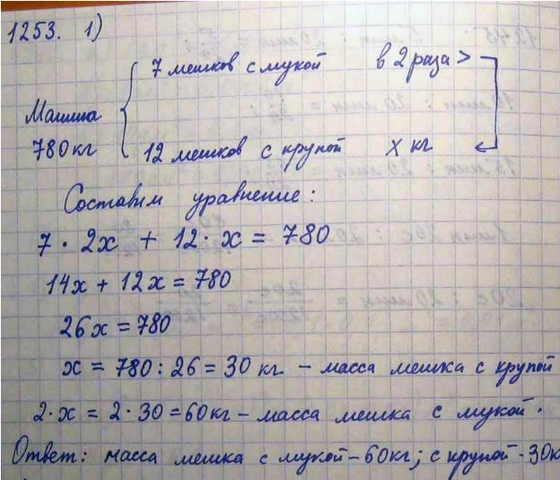 1253. 1)
7 мешков с мукой в 2 раза >
Машина
780 кг
12 мешков с крупой х кг
Составим уравнение:
7 · 2х + 12 · х = 780
14х + 12х = 780
26х = 780
х = 780 : 26 = 30 кг - масса мешка с крупой
2·х = 2·30 = 60 кг - масса мешка с мукой.
Ответ: масса мешка с мукой - 60 кг; с крупой - 30к